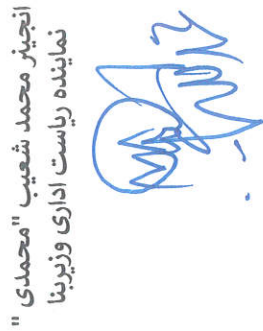 انجینر محمد شعیب "محمدی"
نماینده ریاست اداری وزیربنا